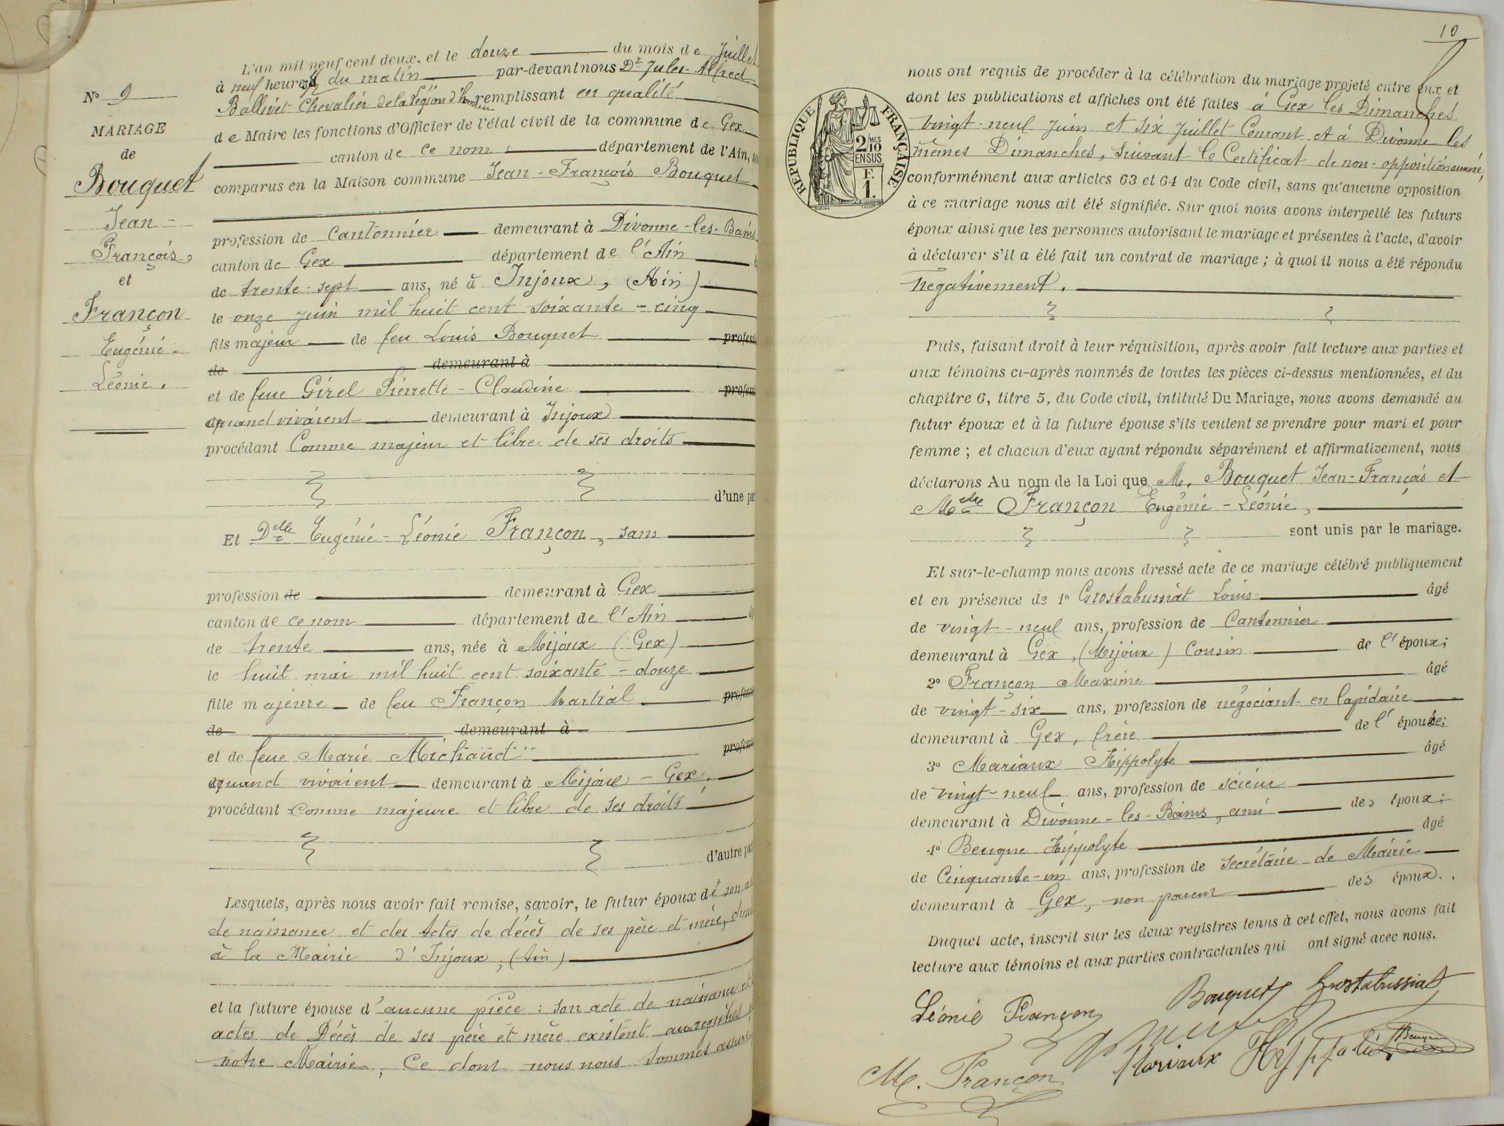 N° 9
MARIAGE
de
Bouquet
Jean-
François
et
Françon
Eugénie-
Léonie.
L'an mil neuf cent deux, et le douze du mois de Juillet
à neuf heures du matin par-devant nous Dr Jules-Alfred
Balliet Chevalier de la Légion d'honneur remplissant en qualité
de Maire les fonctions d'Officier de l'état civil de la commune de Gex
canton de ce nom, département de l'Ain,
comparus en la Maison commune Jean-François Bouquet
profession de Cantonnier demeurant à Divonne-les-Bains
canton de Gex département de l'Ain
de trente-sept ans, né à Injoux, (Ain)
le onze juin mil huit cent soixante-cinq
fils majeur de feu Louis Bouquet profess
de demeurant à
et de feue Girel Pierrette-Claudine profess
quand vivaient demeurant à Injoux
procédant Comme majeur et libre de ses droits
d'une pa
Et Delle Eugénie-Léonie Françon, sans
profession de demeurant à Gex
canton de ce nom département de l'Ain
de trente ans, née à Mijoux (Gex)
le huit mai mil huit cent soixante-douze
fille majeure de feu Françon Martial profess
de demeurant à
et de feue Marie Michaud profess
quand vivaient demeurant à Mijoux-Gex.
procédant comme majeure et libre de ses droits
d'autre pa
Lesquels, après nous avoir fait remise, savoir, le futur époux de son a
de naissance et des Actes de décès de ses père et mère,
à la Mairie d'Injoux, (Ain)
et la future épouse d'aucune pièce : son acte de naissance et
actes de Décès de ses père et mère existent aux registres
notre Mairie, Ce dont nous nous sommes
10
nous ont requis de procéder à la célébration du mariage projeté entre eux et
dont les publications et affiches ont été faites à Gex les Dimanches
vingt-neuf juin et six juillet Courant et à Divonne les
mêmes Dimanches, suivant le Certificat de non-opposition
conformément aux articles 63 et 64 du Code civil, sans qu'aucune opposition
à ce mariage nous ait été signifiée. Sur quoi nous avons interpellé les futurs
époux ainsi que les personnes autorisant le mariage et présentes à l'acte, d'avoir
à déclarer s'il a été fait un contrat de mariage ; à quoi il nous a été répondu
négativement.
RÉPUBLIQUE FRANÇAISE
2 MES
10
EN SUS
F.
1.
Puis, faisant droit à leur réquisition, après avoir fait lecture aux parties et
aux témoins ci-après nommés de toutes les pièces ci-dessus mentionnées, et du
chapitre 6, titre 5, du Code civil, intitulé Du Mariage, nous avons demandé au
futur époux et à la future épouse s'ils veulent se prendre pour mari et pour
femme ; et chacun d'eux ayant répondu séparément et affirmativement, nous
déclarons Au nom de la Loi que M. Bouquet Jean-François et
Melle Françon Eugénie-Léonie,
sont unis par le mariage.
Et sur-le-champ nous avons dressé acte de ce mariage célébré publiquement
et en présence de 1° Grostabussiat Louis âgé
de vingt-neuf ans, profession de Cantonnier
demeurant à Gex, (Mijoux) Cousin de l'époux;
2° Françon Maxime âgé
de vingt-six ans, profession de négociant en lapidaire
demeurant à Gex, frère de l'épouse;
3° Mariaux Hippolyte âgé
de vingt-neuf ans, profession de scieur
demeurant à Divonne-les-Bains, ami des époux;
4° Beugne Hippolyte âgé
de Cinquante-un ans, profession de Secrétaire de Mairie
demeurant à Gex, non parent des époux.
Duquel acte, inscrit sur les deux registres tenus à cet effet, nous avons fait
lecture aux témoins et aux parties contractantes qui ont signé avec nous.
Léonie Françon Bouquet Grostabussiat
M. Françon Mariaux Hippolite